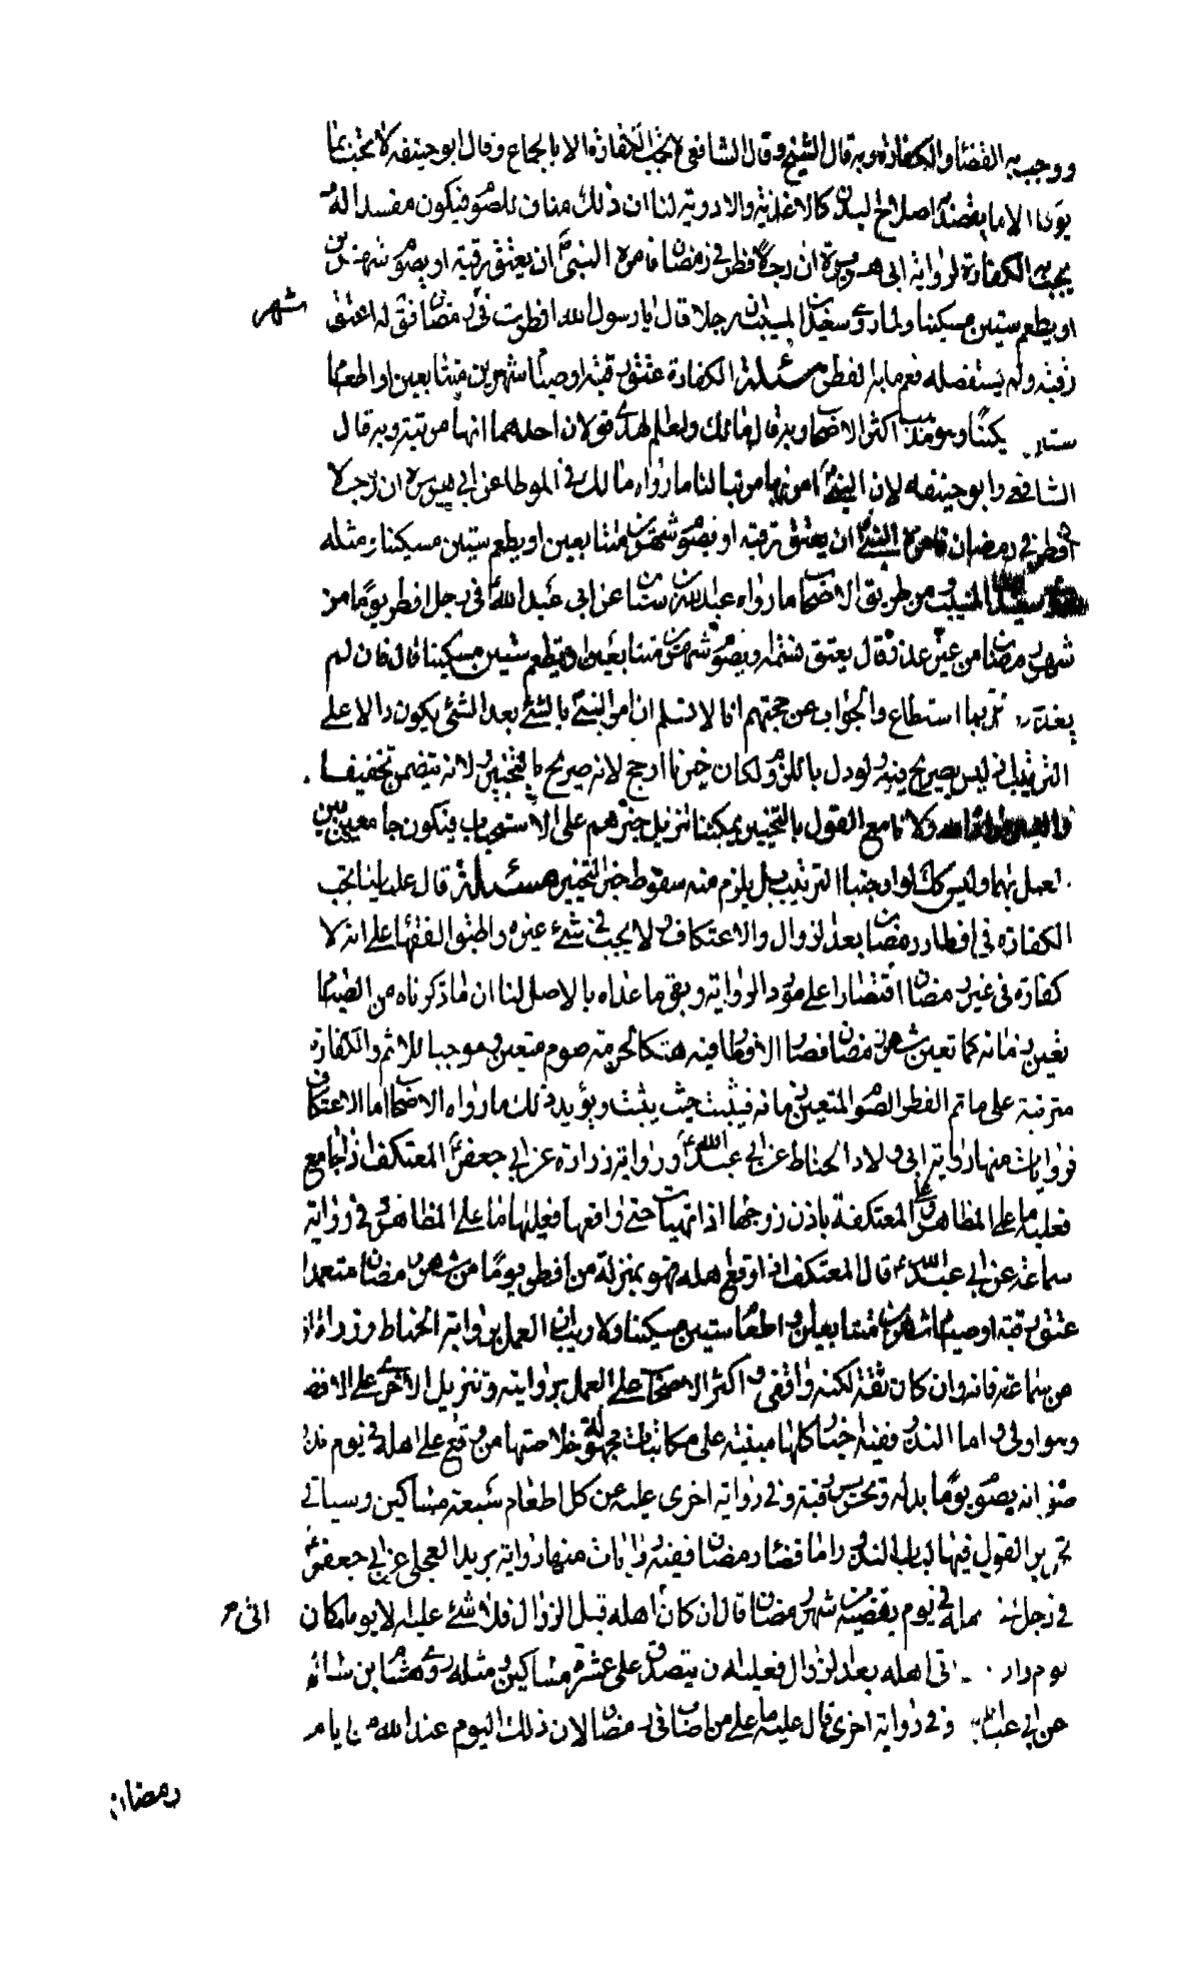 ووجب به القضاء والكفارة وبه قال الشيخ وقال الشافعي لا تجب الكفارة الا بالجماع وقال ابو حنيفه لا تجب بما
الا ما يقصد به اصلاح البدن كالاغذية والادوية لنا ان ذلك مناف للصوم فيكون مفسدا له
يجب به الكفارة لرواية ابى هريرة ان رجلا افطر في رمضان فامره النبي ان يعتق رقبة او يصوم شهرين
او يطعم ستين مسكينا ولما روى سعيد بن المسيب ان رجلا قال يا رسول الله افطرت في رمضان فق له اعتق
شهر
رقبة ولم يستفصله فعم ما به الفطر مسئلة الكفارة عتق رقبة او صيام شهرين متتابعين او اطعام
ستين مسكينا وهو مذهب اكثر الاصحاب وبه قال مالك ولعلم الهدى قولان احدهما انها مرتبة وبه قال
الشافعي وابو حنيفه لان النبي امر بها مرتبا لنا ما رواه مالك في الموطا عن ابي هريره ان رجلا
افطر في رمضان فامره النبي ان يعتق رقبه او يصوم شهرين متتابعين او يطعم ستين مسكينا ومثله
المسيب ومن طريق الاصحاب ما رواه عبدالله بن سنان عن ابى عبد الله في رجل افطر يوما من
شهر رمضان من غير عذر قال يعتق نسمه او يصوم شهرين متتابعين او يطعم ستين مسكينا قال فان لم
يقدر تصدق بما استطاع والجواب عن حجتهم انا لا نسلم ان امر النبي بالشئ بعد الشئ يكون دالا على
الترتيب اذ ليس بصريح فيه ولو دل باللزوم لكان خبرنا ارجح لانه صريح بالتخيير ولانه يتضمن تخفيفا
ولانا مع القول بالتخيير يمكننا تنزيل خبرهم على الاستحباب فنكون جامعين بين
العمل بهما وليس كك لو اوجبنا الترتيب بل يلزم منه سقوط خبر التخيير مسئلة قال علماءنا يجب
الكفارة في افطار رمضان بعد الزوال والاعتكاف ولا يجب في شئ غيره واطبق الفقهاء على انه لا
كفارة في غير رمضان اقتصارا على مورد الرواية وبقى ما عداه بالاصل لنا ان ما ذكرناه من الصيام
تعين زمانه كما تعين شهر رمضان فصار الافطار فيه هتكا لحرمة صوم متعين وموجبا للاثم والكفارة
مترتبة على ماثم الفطر الصوم المتعين زمانه فيثبت حيث يثبت ويؤيد ذلك ما رواه الاصحاب اما الاعتكاف
فروايات منها رواية ابى ولاد الحناط عن ابي عبدالله ورواية زرارة عن ابي جعفر المعتكف اذا جامع
فعليه ما على المظاهر والمعتكفة باذن زوجها اذا تهيات حتى واقعها فعليها ما على المظاهر وفي رواية
سماعة عن ابي عبدالله قال المعتكف اذا وقع اهله فهو بمنزلة من افطر يوما من شهر رمضان متعمدا
عتق رقبة او صيام شهرين متتابعين او اطعام ستين مسكينا ولا ريب ان العمل برواية الحناط وزرارة اولى
من سماعة فانه وان كان ثقة لكنه واقفى واكثر الاصحاب على العمل بروايته وتنزيل الاخرى على الافضل
وهو اولى واما النذر ففيه اخبار كلها مبنية على مكاتبات مجهولة خلاصتها من وقع على اهله في يوم نذر
صومه انه يصوم يوما بدله وتحرير رقبة وفي رواية اخرى عليه عن كل اطعام سبعة مساكين وسياتي
تحرير القول فيها لباب النذر واما قضاء رمضان ففيه روايات منها رواية بريد العجلي عن ابي جعفر
في رجل اتى اهله في يوم يقضيه من شهر رمضان قال ان كان اهله قبل الزوال فلا شئ عليه الا يوما مكان
اتى
يوم وان اتى اهله بعد الزوال فعليه ان يتصدق على عشرة مساكين ومثله روى هشام بن سالم
عن ابي عبدالله وفي رواية اخرى قال عليه ما على من اصاب في رمضان لان ذلك اليوم عند الله من ايام
رمضان